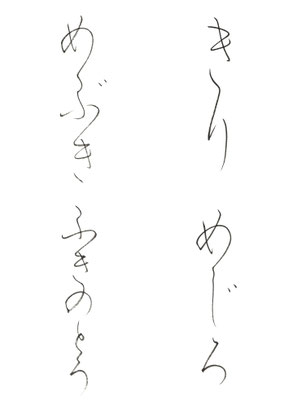 きり
めじろ
めぶき
ふきのとう